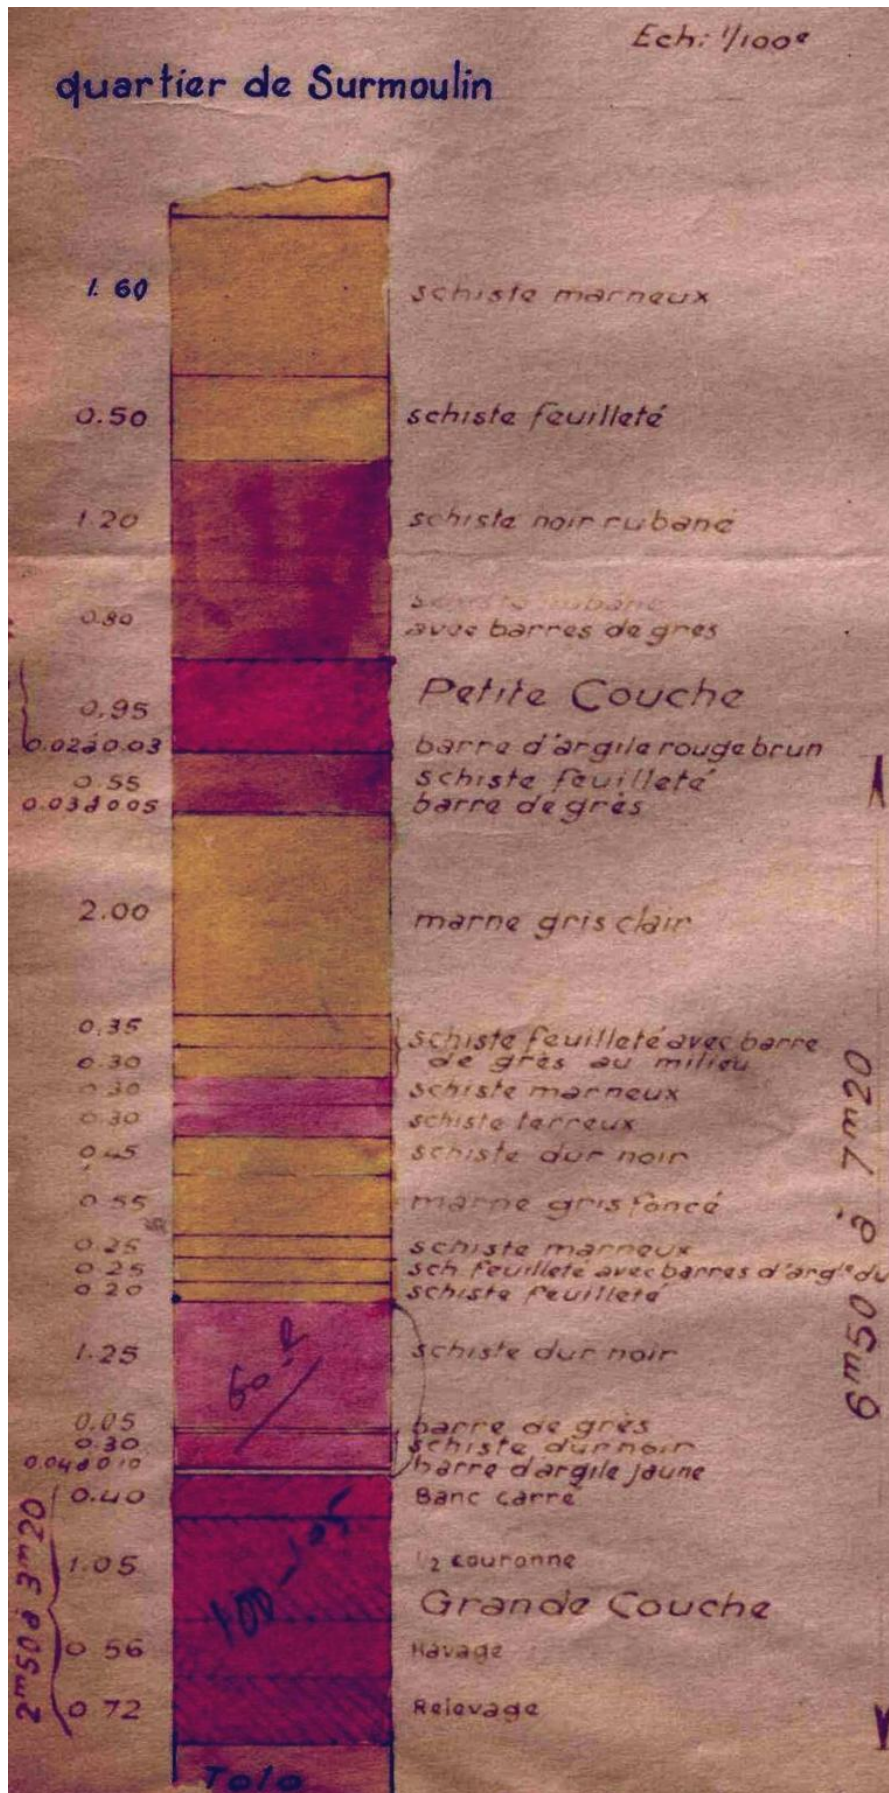 Ech: 1/100e
quartier de Surmoulin
1.60 schiste marneux
0.50 schiste feuilleté
1.20 schiste noir rubané
0.80 schiste rubané
avec barres de grès
0.95 Petite Couche
0.02à0.03 barre d'argile rouge brun
0.55 schiste feuilleté
0.03à005 barre de grès
2.00 marne gris clair
0.35 schiste feuilleté avec barre
0.30 de grès au milieu
0.30 schiste marneux
0.30 schiste terreux
0.45 schiste dur noir
0.55 marne gris foncé
0.25 schiste marneux
0.25 sch. feuilleté avec barres d'argle du
0.20 schiste feuilleté
1.25 schiste dur noir
0.05 barre de grès
0.30 schiste dur noir
0.04à010 barre d'argile jaune
0.40 Banc carré
1.05 1/2 couronne
100-105
Grande Couche
0 56 Havage
0 72 Relevage
Toit
2m50à 3m20
6m50 à 7m20